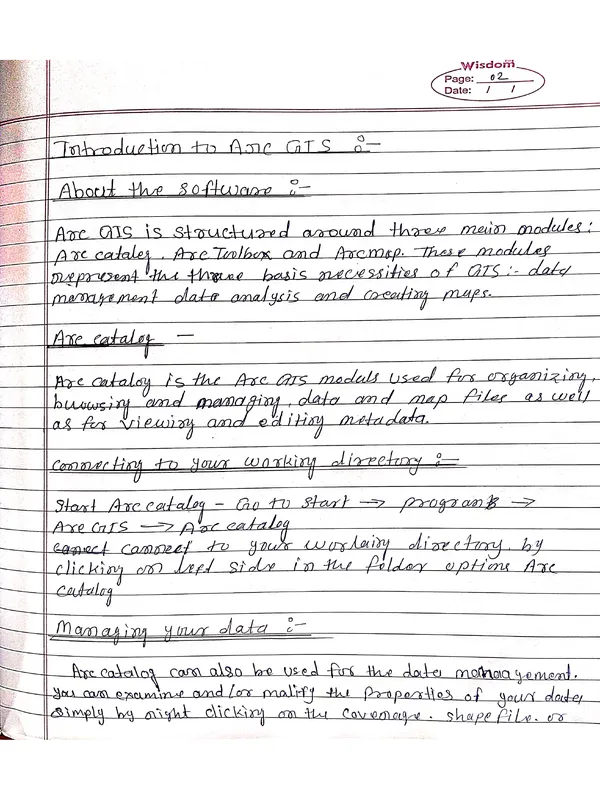 Wisdom
Page: 02
Date: / /
Introduction to Arc GIS :-
About the software :-
Arc GIS is structured around three main modules:
Arc catalog, Arc Toolbox and Arcmap. These modules
represent the three basis necessities of GIS :- data
management data analysis and creating maps.
Arc catalog -
Arc catalog is the Arc GIS moduls used for organizing,
buowsing and managing, data and map files as well
as for viewing and editing metadata.
Connecting to your working directory :-
Start Arc catalog - Go to start → program →
Arc GIS → Arc catalog
connect to your working directory. by
clicking on left side in the folder options Arc
Catalog
Managing your data :-
Arc catalog can also be used for the data management.
You can examine and/or modify the Properties of your data,
simply by right clicking on the coverage. shapefile. or